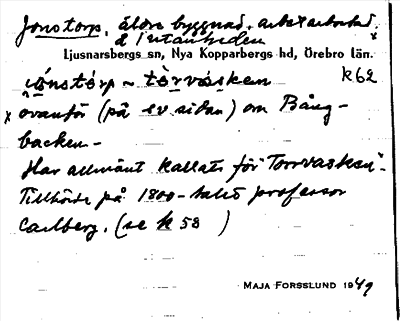 Jonstorp, äldre byggnad, arbetarbostad,
å Utanheden
Ljusnarsbergs sn, Nya Kopparbergs hd, Örebro län.
jónstórp ~ tòrvasken k 62
x ovanför (på ev. sidan) om Bång-
backen -
Har allmänt kallats för "Torrvasken".
Tillhörde på 1800-talet professor
Carlberg. (se k 58 )
MAJA FORSSLUND 1949